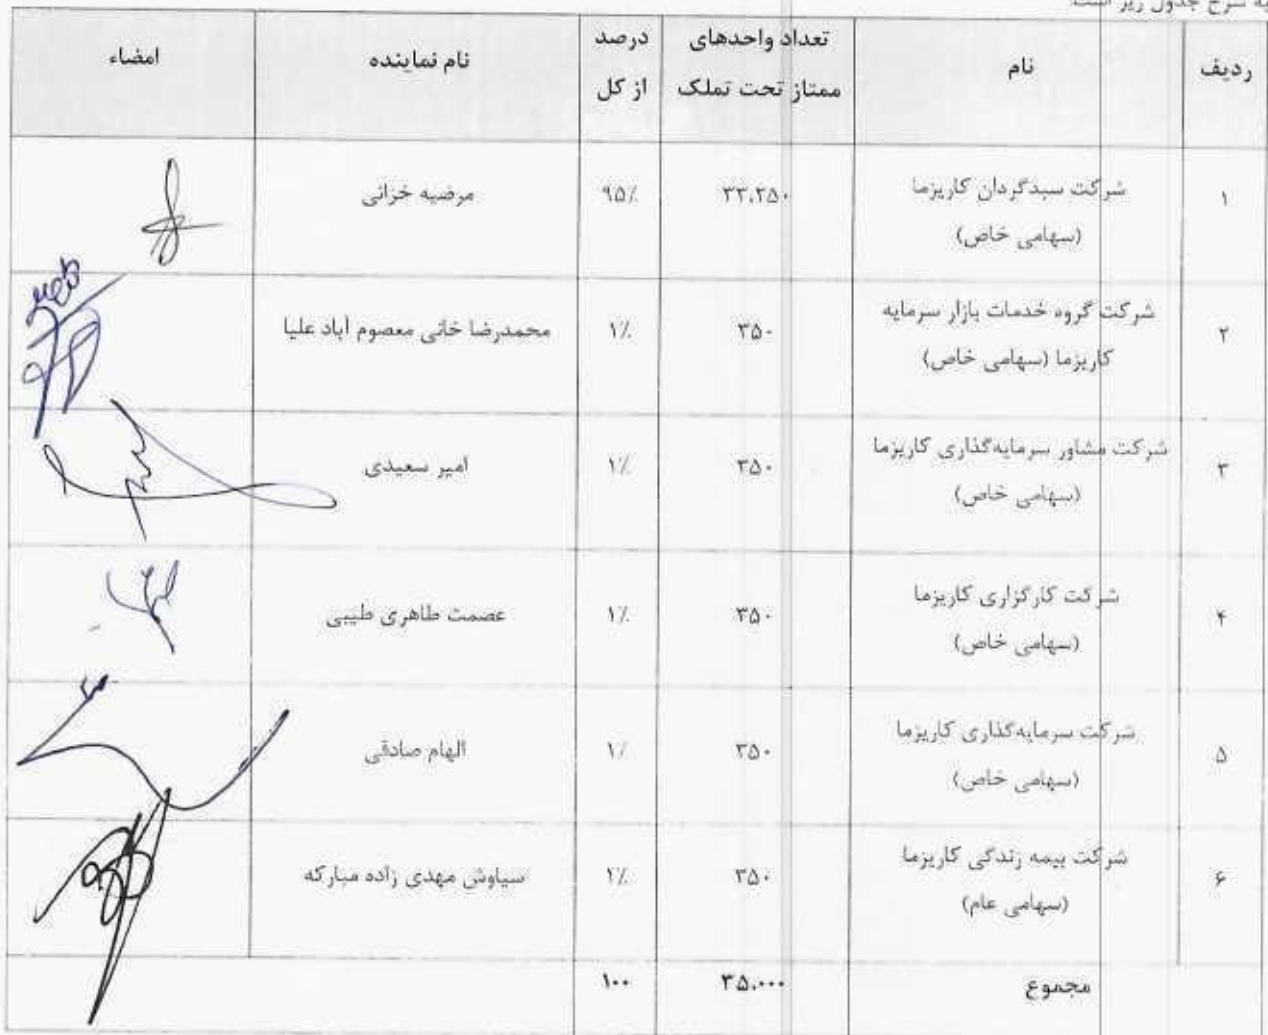 به شرح جدول زیر است:
ردیف	نام	تعداد واحدهای ممتاز تحت تملک	درصد از کل	نام نماینده	امضاء
۱	شرکت سبدگردان کاریزما (سهامی خاص)	۳۳،۲۵۰	۹۵٪	مرضیه خزانی
۲	شرکت گروه خدمات بازار سرمایه کاریزما (سهامی خاص)	۳۵۰	۱٪	محمدرضا خانی معصوم آباد علیا
۳	شرکت مشاور سرمایه‌گذاری کاریزما (سهامی خاص)	۳۵۰	۱٪	امیر سعیدی
۴	شرکت کارگزاری کاریزما (سهامی خاص)	۳۵۰	۱٪	عصمت طاهری طیبی
۵	شرکت سرمایه‌گذاری کاریزما (سهامی خاص)	۳۵۰	۱٪	الهام صادقی
۶	شرکت بیمه زندگی کاریزما (سهامی عام)	۳۵۰	۱٪	سیاوش مهدی زاده مبارکه
مجموع	۳۵،۰۰۰	۱۰۰